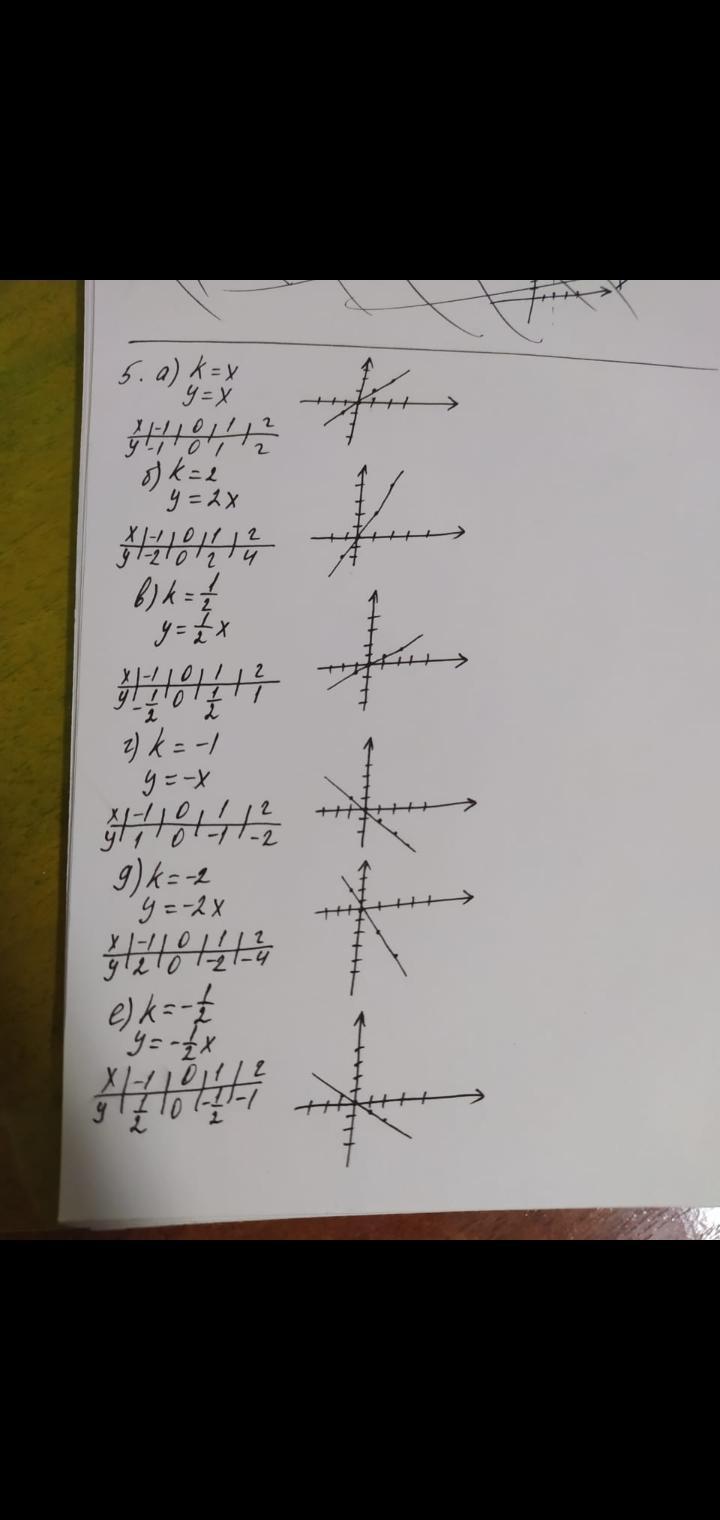 5. а) k = x
y = x
x | -1 | 0 | 1 | 2
y | -1 | 0 | 1 | 2
б) k = 2
y = 2x
x | -1 | 0 | 1 | 2
y | -2 | 0 | 2 | 4
в) k = 1/2
y = 1/2 x
x | -1 | 0 | 1 | 2
y | -1/2 | 0 | 1/2 | 1
г) k = -1
y = -x
x | -1 | 0 | 1 | 2
y | 1 | 0 | -1 | -2
д) k = -2
y = -2x
x | -1 | 0 | 1 | 2
y | 2 | 0 | -2 | -4
е) k = -1/2
y = -1/2 x
x | -1 | 0 | 1 | 2
y | 1/2 | 0 | -1/2 | -1